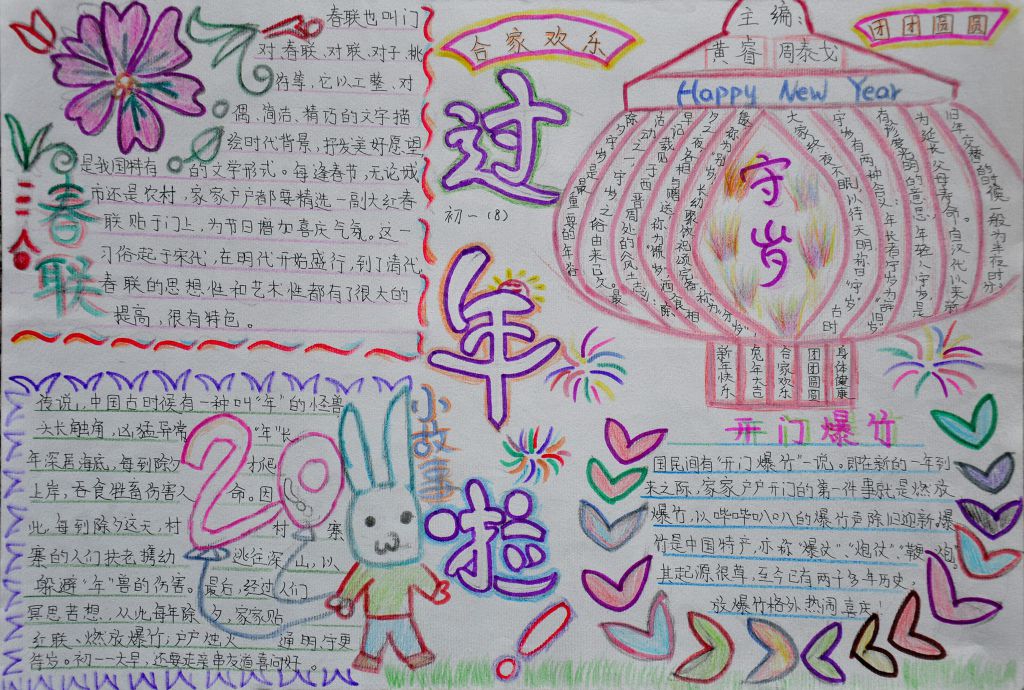 春联也叫门
对、春联、对联、对子、桃
符等，它以工整、对
偶、简洁、精巧的文字描
绘时代背景，抒发美好愿望
是我国特有的文学形式。每逢春节，无论城
市还是农村，家家户户都要精选一副大红春
联贴于门上，为节日增加喜庆气氛。这一
习俗起于宋代，在明代开始盛行，到了清代，
春联的思想性和艺术性都有了很大的
提高，很有特色。
春联
合家欢乐
过年啦！
初一(8)
主编：
黄睿 周泰戈
团团圆圆
Happy New Year
守岁
旧年交替的
候一般为半夜时分
为延长父母寿命。自汉代以来新
有珍爱光明的意思；年轻人守岁，是
守岁有两种含义：年长者守岁为“辞旧岁”
大家终夜不眠，以待天明，称曰“守岁”。古时
最重要的年
守岁之俗由来已久。最
新年快乐
兔年大吉
合家欢乐
团团圆圆
身体健康
小故事
传说，中国古时候有一种叫“年”的怪兽
头长触角，凶猛异常 “年”长
年深居海底，每到除夕才爬
上岸，吞食牲畜伤害人命。因
此，每到除夕这天，村村寨
寨的人们扶老携幼逃往深山，以
躲避“年”兽的伤害。最后，经过人们
冥思苦想，从此每年除夕，家家贴
红联、燃放爆竹；户户烛火通明行更
待岁。初一一大早，还要走亲串友道喜问好。
20
开门爆竹
国民间有“开门爆竹”一说。即在新的一年到
来之际，家家户户开门的第一件事就是燃放
爆竹，以哔哔叭叭的爆竹声除旧迎新。爆
竹是中国特产，亦称“爆仗”、“炮仗”、“鞭炮”。
其起源很早，至今已有两千多年历史，
放爆竹格外热闹喜庆！